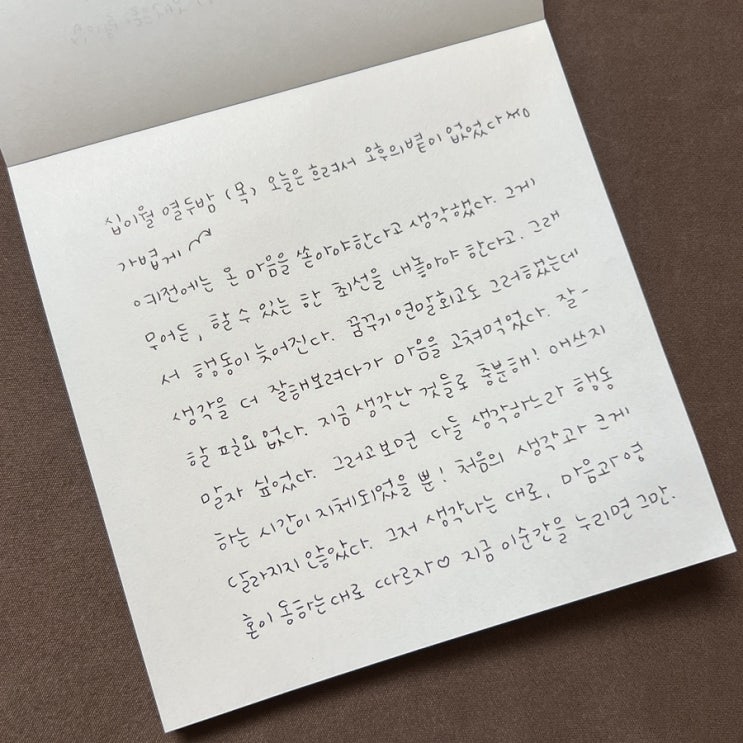 십이월 열두밤 (목) 오늘은 흐려서 오후의볕이 없었다
가볍게
예전에는 온 마음을 쏟아야한다고 생각했다. 그게
무어든, 할 수 있는 한 최선을 내놓아야 한다고. 그래
서 행동이 늦어진다. 꿈꾸기연말회고도 그러했는데
생각을 더 잘해보려다가 마음을 고쳐먹었다. 잘-
할 필요 없다. 지금 생각난 것들로 충분해! 애쓰지
말자 싶었다. 그러고보면 다들 생각하느라 행동
하는 시간이 지체되었을 뿐! 처음의 생각과 크게
달라지지 않았다. 그저 생각나는 대로, 마음과 영
혼이 동하는대로 따르자♡ 지금 이순간을 누리면 그만.